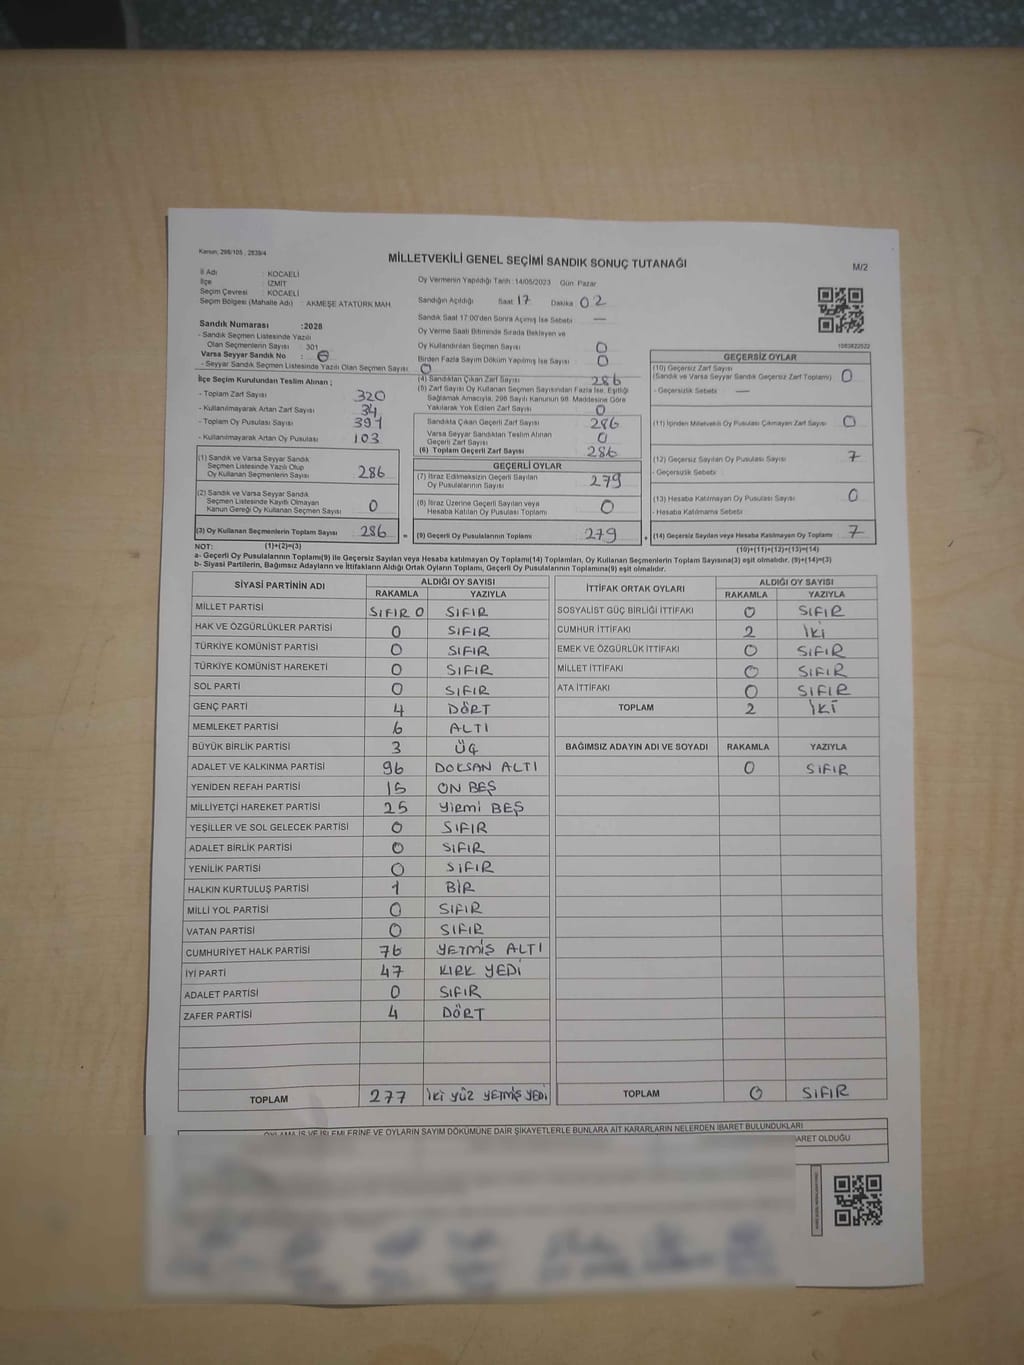 Kanun: 298/105 , 2839/4
MİLLETVEKİLİ GENEL SEÇİMİ SANDIK SONUÇ TUTANAĞI
M/2
İl Adı : KOCAELİ
İlçe : İZMİT
Seçim Çevresi : KOCAELİ
Seçim Bölgesi (Mahalle Adı) : AKMEŞE ATATÜRK MAH.
Oy Vermenin Yapıldığı Tarih :14/05/2023 Gün Pazar
Sandığın Açıldığı Saat 17 Dakika 02
Sandık Saat 17:00'den Sonra Açılmış İse Sebebi —
Oy Verme Saati Bitiminde Sırada Bekleyen ve
Oy Kullandırılan Seçmen Sayısı 0
Birden Fazla Sayım Döküm Yapılmış İse Sayısı 0
Sandık Numarası :2028
- Sandık Seçmen Listesinde Yazılı
Olan Seçmenlerin Sayısı : 301
Varsa Seyyar Sandık No : 0
- Seyyar Sandık Seçmen Listesinde Yazılı Olan Seçmen Sayısı 0
İlçe Seçim Kurulundan Teslim Alınan ;
- Toplam Zarf Sayısı 320
- Kullanılmayarak Artan Zarf Sayısı 34
- Toplam Oy Pusulası Sayısı 391
- Kullanılmayarak Artan Oy Pusulası 103
(1) Sandık ve Varsa Seyyar Sandık
Seçmen Listesinde Yazılı Olup
Oy Kullanan Seçmenlerin Sayısı 286
(2) Sandık ve Varsa Seyyar Sandık
Seçmen Listesinde Kayıtlı Olmayan
Kanun Gereği Oy Kullanan Seçmen Sayısı 0
(3) Oy Kullanan Seçmenlerin Toplam Sayısı 286 =
(4) Sandıktan Çıkan Zarf Sayısı 286
(5) Zarf Sayısı Oy Kullanan Seçmen Sayısından Fazla İse, Eşitliği
Sağlamak Amacıyla, 298 Sayılı Kanunun 98. Maddesine Göre
Yakılarak Yok Edilen Zarf Sayısı 0
Sandıkta Çıkan Geçerli Zarf Sayısı 286
Varsa Seyyar Sandıktan Teslim Alınan
Geçerli Zarf Sayısı 0
(6) Toplam Geçerli Zarf Sayısı 286
GEÇERLİ OYLAR
(7) İtiraz Edilmeksizin Geçerli Sayılan
Oy Pusulalarının Sayısı 279
(8) İtiraz Üzerine Geçerli Sayılan veya
Hesaba Katılan Oy Pusulası Toplamı 0
(9) Geçerli Oy Pusulalarının Toplamı 279 +
1083822522
GEÇERSİZ OYLAR
(10) Geçersiz Zarf Sayısı
(Sandık ve Varsa Seyyar Sandık Geçersiz Zarf Toplamı) 0
- Geçersizlik Sebebi : —
(11) İçinden Milletvekili Oy Pusulası Çıkmayan Zarf Sayısı 0
(12) Geçersiz Sayılan Oy Pusulası Sayısı 7
- Geçersizlik Sebebi :
(13) Hesaba Katılmayan Oy Pusulası Sayısı 0
- Hesaba Katılmama Sebebi :
(14) Geçersiz Sayılan veya Hesaba Katılmayan Oy Toplamı 7
NOT: (1)+(2)=(3) (10)+(11)+(12)+(13)=(14)
a- Geçerli Oy Pusulalarının Toplamı(9) ile Geçersiz Sayılan veya Hesaba katılmayan Oy Toplamı(14) Toplamları, Oy Kullanan Seçmenlerin Toplam Sayısına(3) eşit olmalıdır. (9)+(14)=(3)
b- Siyasi Partilerin, Bağımsız Adayların ve İttifakların Aldığı Ortak Oyların Toplamı, Geçerli Oy Pusulalarının Toplamına(9) eşit olmalıdır.
SİYASİ PARTİNİN ADI ALDIĞI OY SAYISI
RAKAMLA YAZIYLA
MİLLET PARTİSİ SIFIR 0 SIFIR
HAK VE ÖZGÜRLÜKLER PARTİSİ 0 SIFIR
TÜRKİYE KOMÜNİST PARTİSİ 0 SIFIR
TÜRKİYE KOMÜNİST HAREKETİ 0 SIFIR
SOL PARTİ 0 SIFIR
GENÇ PARTİ 4 DÖRT
MEMLEKET PARTİSİ 6 ALTI
BÜYÜK BİRLİK PARTİSİ 3 ÜÇ
ADALET VE KALKINMA PARTİSİ 96 DOKSAN ALTI
YENİDEN REFAH PARTİSİ 15 ON BEŞ
MİLLİYETÇİ HAREKET PARTİSİ 25 YİRMİ BEŞ
YEŞİLLER VE SOL GELECEK PARTİSİ 0 SIFIR
ADALET BİRLİK PARTİSİ 0 SIFIR
YENİLİK PARTİSİ 0 SIFIR
HALKIN KURTULUŞ PARTİSİ 1 BİR
MİLLİ YOL PARTİSİ 0 SIFIR
VATAN PARTİSİ 0 SIFIR
CUMHURİYET HALK PARTİSİ 76 YETMİŞ ALTI
İYİ PARTİ 47 KIRK YEDİ
ADALET PARTİSİ 0 SIFIR
ZAFER PARTİSİ 4 DÖRT
TOPLAM 277 İKİ YÜZ YETMİŞ YEDİ
İTTİFAK ORTAK OYLARI ALDIĞI OY SAYISI
RAKAMLA YAZIYLA
SOSYALİST GÜÇ BİRLİĞİ İTTİFAKI 0 SIFIR
CUMHUR İTTİFAKI 2 İKİ
EMEK VE ÖZGÜRLÜK İTTİFAKI 0 SIFIR
MİLLET İTTİFAKI 0 SIFIR
ATA İTTİFAKI 0 SIFIR
TOPLAM 2 İKİ
BAĞIMSIZ ADAYIN ADI VE SOYADI RAKAMLA YAZIYLA
0 SIFIR
TOPLAM 0 SIFIR
OYLAMA İŞ VE İŞLEMLERİNE VE OYLARIN SAYIM DÖKÜMÜNE DAİR ŞİKAYETLERLE BUNLARA AİT KARARLARIN NELERDEN İBARET BULUNDUKLARI
BARET OLDUĞU